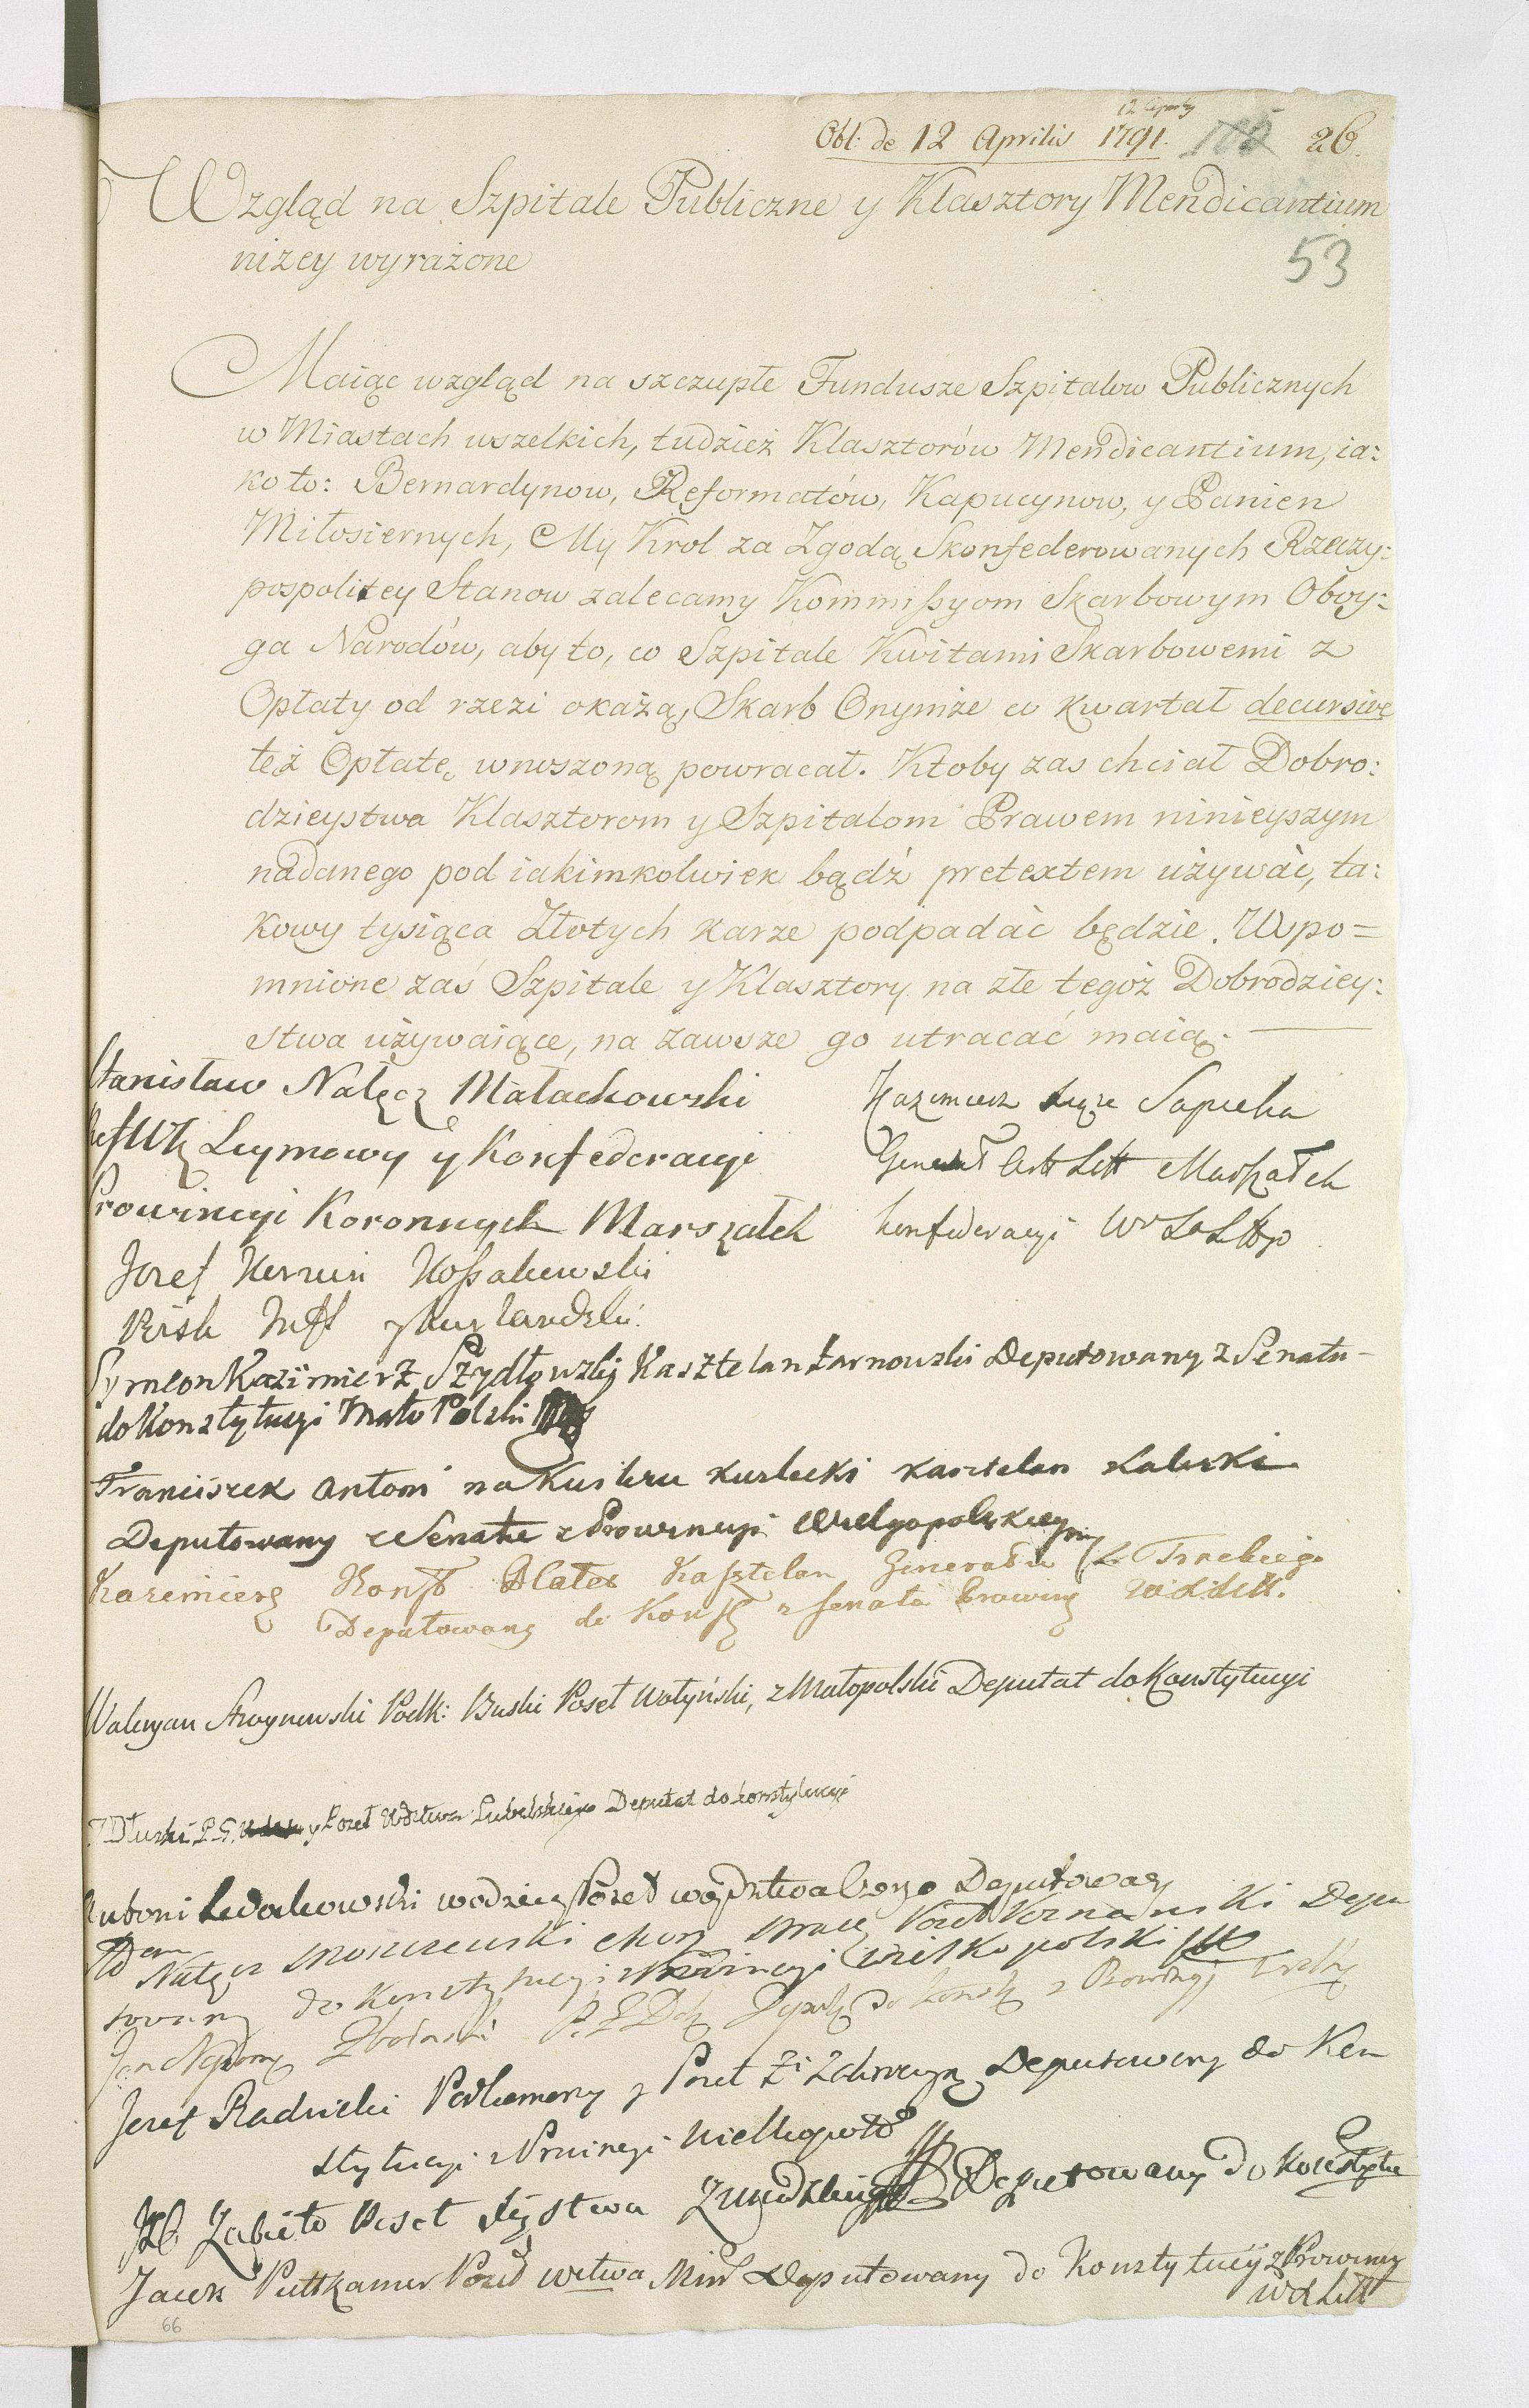 Obl: de 12 Aprilis 1791. 26.
Wzgląd na Szpitale Publiczne y Klasztory Mendicantium
niżey wyrażone
53
Maiąc wzgląd na szczupłe Fundusze Szpitalow Publicznych
w Miastach wszelkich, tudzież Klasztorów Mendicantium, ia:
ko to: Bernardynow, Reformatów, Kapucynow, y Panien
Miłosiernych, My Krol za Zgodą Skonfederowanych Rzeczy:
pospolitey Stanow zalecamy Kommissyom Skarbowym Oboy:
ga Narodów, aby to, co Szpitale Kwitami Skarbowemi z
Opłaty od rzezi okażą, Skarb Onymże co kwartał decursive
też Opłatę wnoszoną powracał. Ktoby zas chciał Dobro:
dzieystwa Klasztorom y Szpitalom Prawem ninieyszym
nadanego pod iakimkolwiek bądź pretextem używać, ta:
kowy tysiąca Złotych karze podpadać będzie. Wspo=
mnione zaś Szpitale y Klasztory na złe tegoż Dobrodziey:
stwa używaiące, na zawsze go utracać maią.
Stanisław Nałęcz Małachowski
Seymowy y Konfederacyi
Prowincyi Koronnych Marszałek
Kazimierz Xiąże Sapieha
Generał Artt Litt Marszałek
konfederacyi
Jozef Korwin Kossakowski
Bisk Infl y Kurlandzki.
Symeon Kazimierz Szydłowski Kasztelan Żarnowski Deputowany z Senatu
do Konstytucyi Mało Polski
Franciszek Antoni na Kwilczu Kwilecki Kasztelan Kaliski
Deputowany z Senatu z Prowincyi Wielgopolskiey
Kazimierz Konst Plater Kasztelan Generału Trockiego
Deputowany do Konst z Senatu Prowinc
Waleryan Stroynowski Podk: Buski Poseł Wołyński, z Małopolski Deputat do Konstytucyi
T Dłuski P. G. y Poseł Wdztwa Lubelskiego Deputat do konstytucyi
Antoni Ledochowski Poseł Deputowany
Adam Nałęcz Moszczenski Poseł Poznański Depu
towany do Konstytucyi z Prowincyi Wielkopolski
Jan Nepom Zboinski do Konst z Prowincyi
Jozef Radzicki Podkomorzy y Poseł Zi Zakroczym Deputowany do Kon
stytucyi z Prowincyi Wielkopol
Zabiełło Poseł Xięstwa Żmudzkiego Deputowany do Konstytu
Jacek Puttkamer Poseł Wdztwa Min Deputowany do Konstytucyi z Prowincy
W X Litt
66